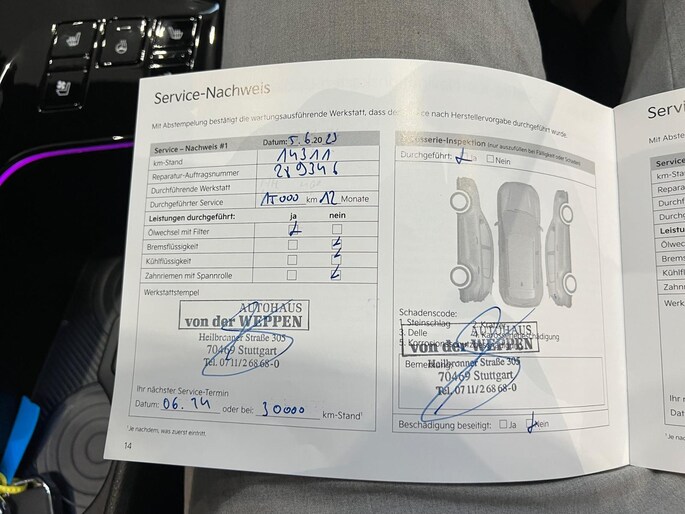 Service-Nachweis
Mit Abstempelung bestätigt die wartungsausführende Werkstatt, dass der Service nach Herstellervorgabe durchgeführt wurde.
Service – Nachweis #1 Datum: 5. 6. 20 23
km-Stand 14311
Reparatur-Auftragsnummer 289346
Durchführende Werkstatt
Durchgeführter Service 15000 km 12 Monate
Leistungen durchgeführt: ja nein
Ölwechsel mit Filter
Bremsflüssigkeit
Kühlflüssigkeit
Zahnriemen mit Spannrolle
Werkstattstempel
AUTOHAUS
von der WEPPEN
Heilbronner Straße 305
70469 Stuttgart
Tel. 07 11/2 68 68-0
Ihr nächster Service-Termin
Datum: 06. oder bei: 30000 km-Stand¹
¹ Je nachdem, was zuerst eintritt.
14
Karosserie-Inspektion (nur auszufüllen bei Fälligkeit oder Schäden)
Durchgeführt: Ja Nein
Schadenscode:
1. Steinschlag 2. Kratzer
3. Delle 4. Karosseriebeschädigung
5. Korrosion
AUTOHAUS
von der WEPPEN
Bemerkung:
Heilbronner Straße 305
70469 Stuttgart
Tel. 07 11/2 68 68-0
Beschädigung beseitigt: Ja Nein
Servi
Mit Abste
Service
km-Sta
Repara
Durchf
Durchg
Leistu
Ölwec
Brems
Kühlfl
Zahnri
Werk
Ihr n
Datu
¹ Je nac